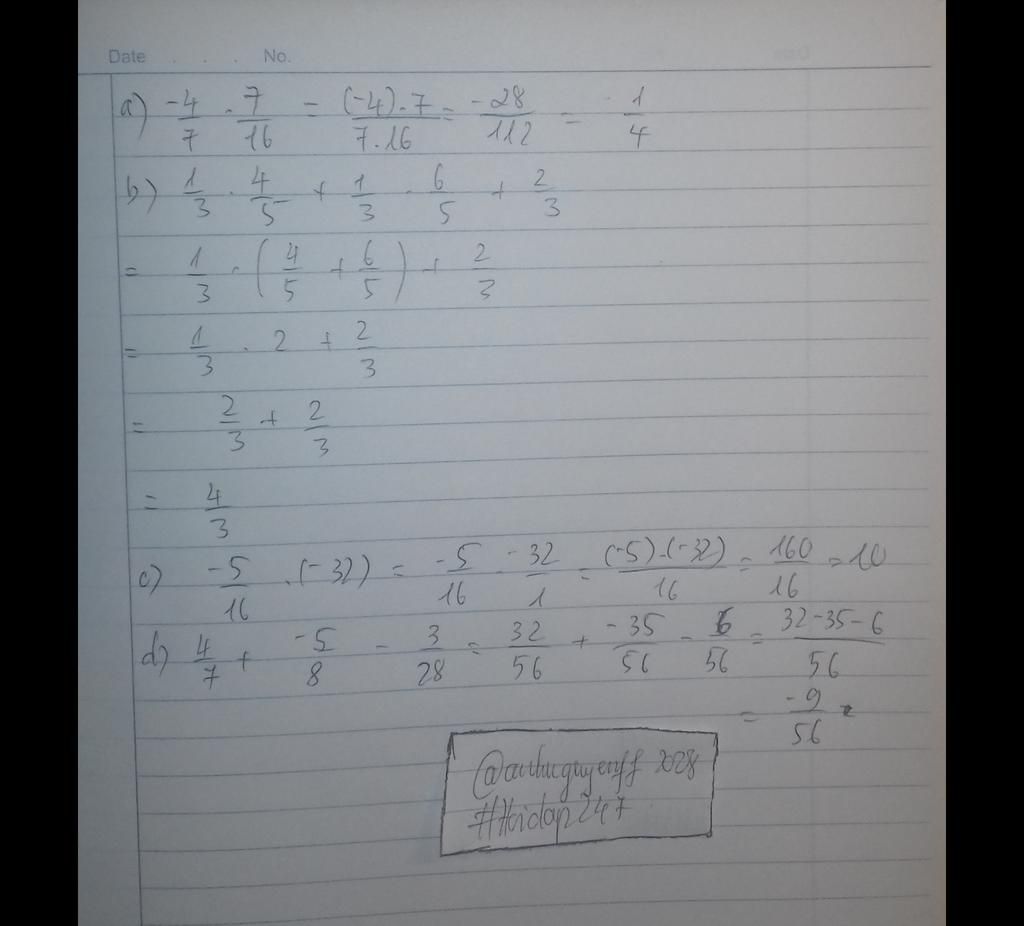 Date . . . No.
a) -4/7 . 7/16 = (-4).7/7.16 = -28/112 = -1/4
b) 1/3 . 4/5 + 1/3 . 6/5 + 2/3
= 1/3 . (4/5 + 6/5) + 2/3
= 1/3 . 2 + 2/3
= 2/3 + 2/3
= 4/3
c) -5/16 . (-32) = -5/16 . -32/1 = (-5).(-32)/16 = 160/16 = 10
d) 4/7 + -5/8 - 3/28 = 32/56 + -35/56 - 6/56 = 32-35-6/56
= -9/56.
#Hoidap247